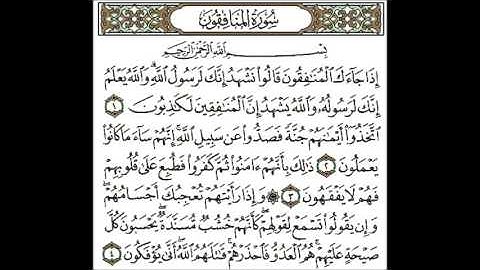 سُورَةُ الْمُنَافِقُونَ
بِسْمِ اللَّهِ الرَّحْمَٰنِ الرَّحِيمِ
إِذَا جَآءَكَ ٱلْمُنَٰفِقُونَ قَالُوا۟ نَشْهَدُ إِنَّكَ لَرَسُولُ ٱللَّهِ ۗ وَٱللَّهُ يَعْلَمُ
إِنَّكَ لَرَسُولُهُۥ وَٱللَّهُ يَشْهَدُ إِنَّ ٱلْمُنَٰفِقِينَ لَكَٰذِبُونَ ١
ٱتَّخَذُوٓا۟ أَيْمَٰنَهُمْ جُنَّةً فَصَدُّوا۟ عَن سَبِيلِ ٱللَّهِ ۚ إِنَّهُمْ سَآءَ مَا كَانُوا۟
يَعْمَلُونَ ٢ ذَٰلِكَ بِأَنَّهُمْ ءَامَنُوا۟ ثُمَّ كَفَرُوا۟ فَطُبِعَ عَلَىٰ قُلُوبِهِمْ
فَهُمْ لَا يَفْقَهُونَ ٣ ۞ وَإِذَا رَأَيْتَهُمْ تُعْجِبُكَ أَجْسَامُهُمْ ۖ
وَإِن يَقُولُوا۟ تَسْمَعْ لِقَوْلِهِمْ ۖ كَأَنَّهُمْ خُشُبٌ مُّسَنَّدَةٌ ۖ يَحْسَبُونَ كُلَّ
صَيْحَةٍ عَلَيْهِمْ ۚ هُمُ ٱلْعَدُوُّ فَٱحْذَرْهُمْ ۚ قَٰتَلَهُمُ ٱللَّهُ ۖ أَنَّىٰ يُؤْفَكُونَ ٤